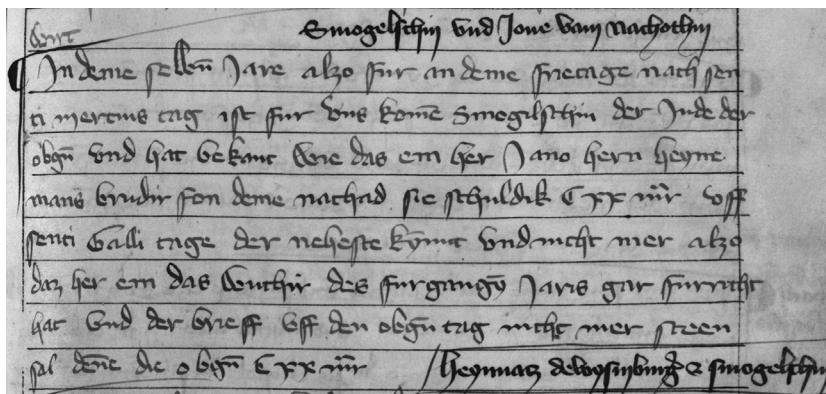 Smogelschin vnd Jone vam Nachothin
In deme selben Jare alzo fur an deme frietage nach sen
ti mertins tag ist fur vns komen Smogilschin der Jude der
obgn vnd hat bekant wie das em her Jano hern heyne
mans brudir fon deme nachad sie schuldik C xx mr vff
senti Galli tage der neheste kymt vnd nicht mer alzo
daz her em das wuchir des furgangn Jaris gar furricht
hat vnd der brieff vff den obgn tag nicht mer steen
sal denne die obgn C xx mr heynnatz smogelschin